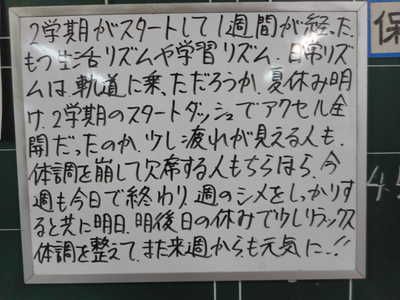 2学期がスタートして1週間が経った
もう生活リズムや学習リズム、日常リズ
ムは、軌道に乗ただろうか、夏休み明
け、2学期のスタートダッシュでアクセル全
開だったのか、少し疲れが見える人も、
体調を崩して欠席する人もちらほら、今
週も今日で終わり、週のシメをしっかりす
ると共に明日、明後日の休みで少しリラックス
体調を整えて、また来週からも元気に、!!
保
45